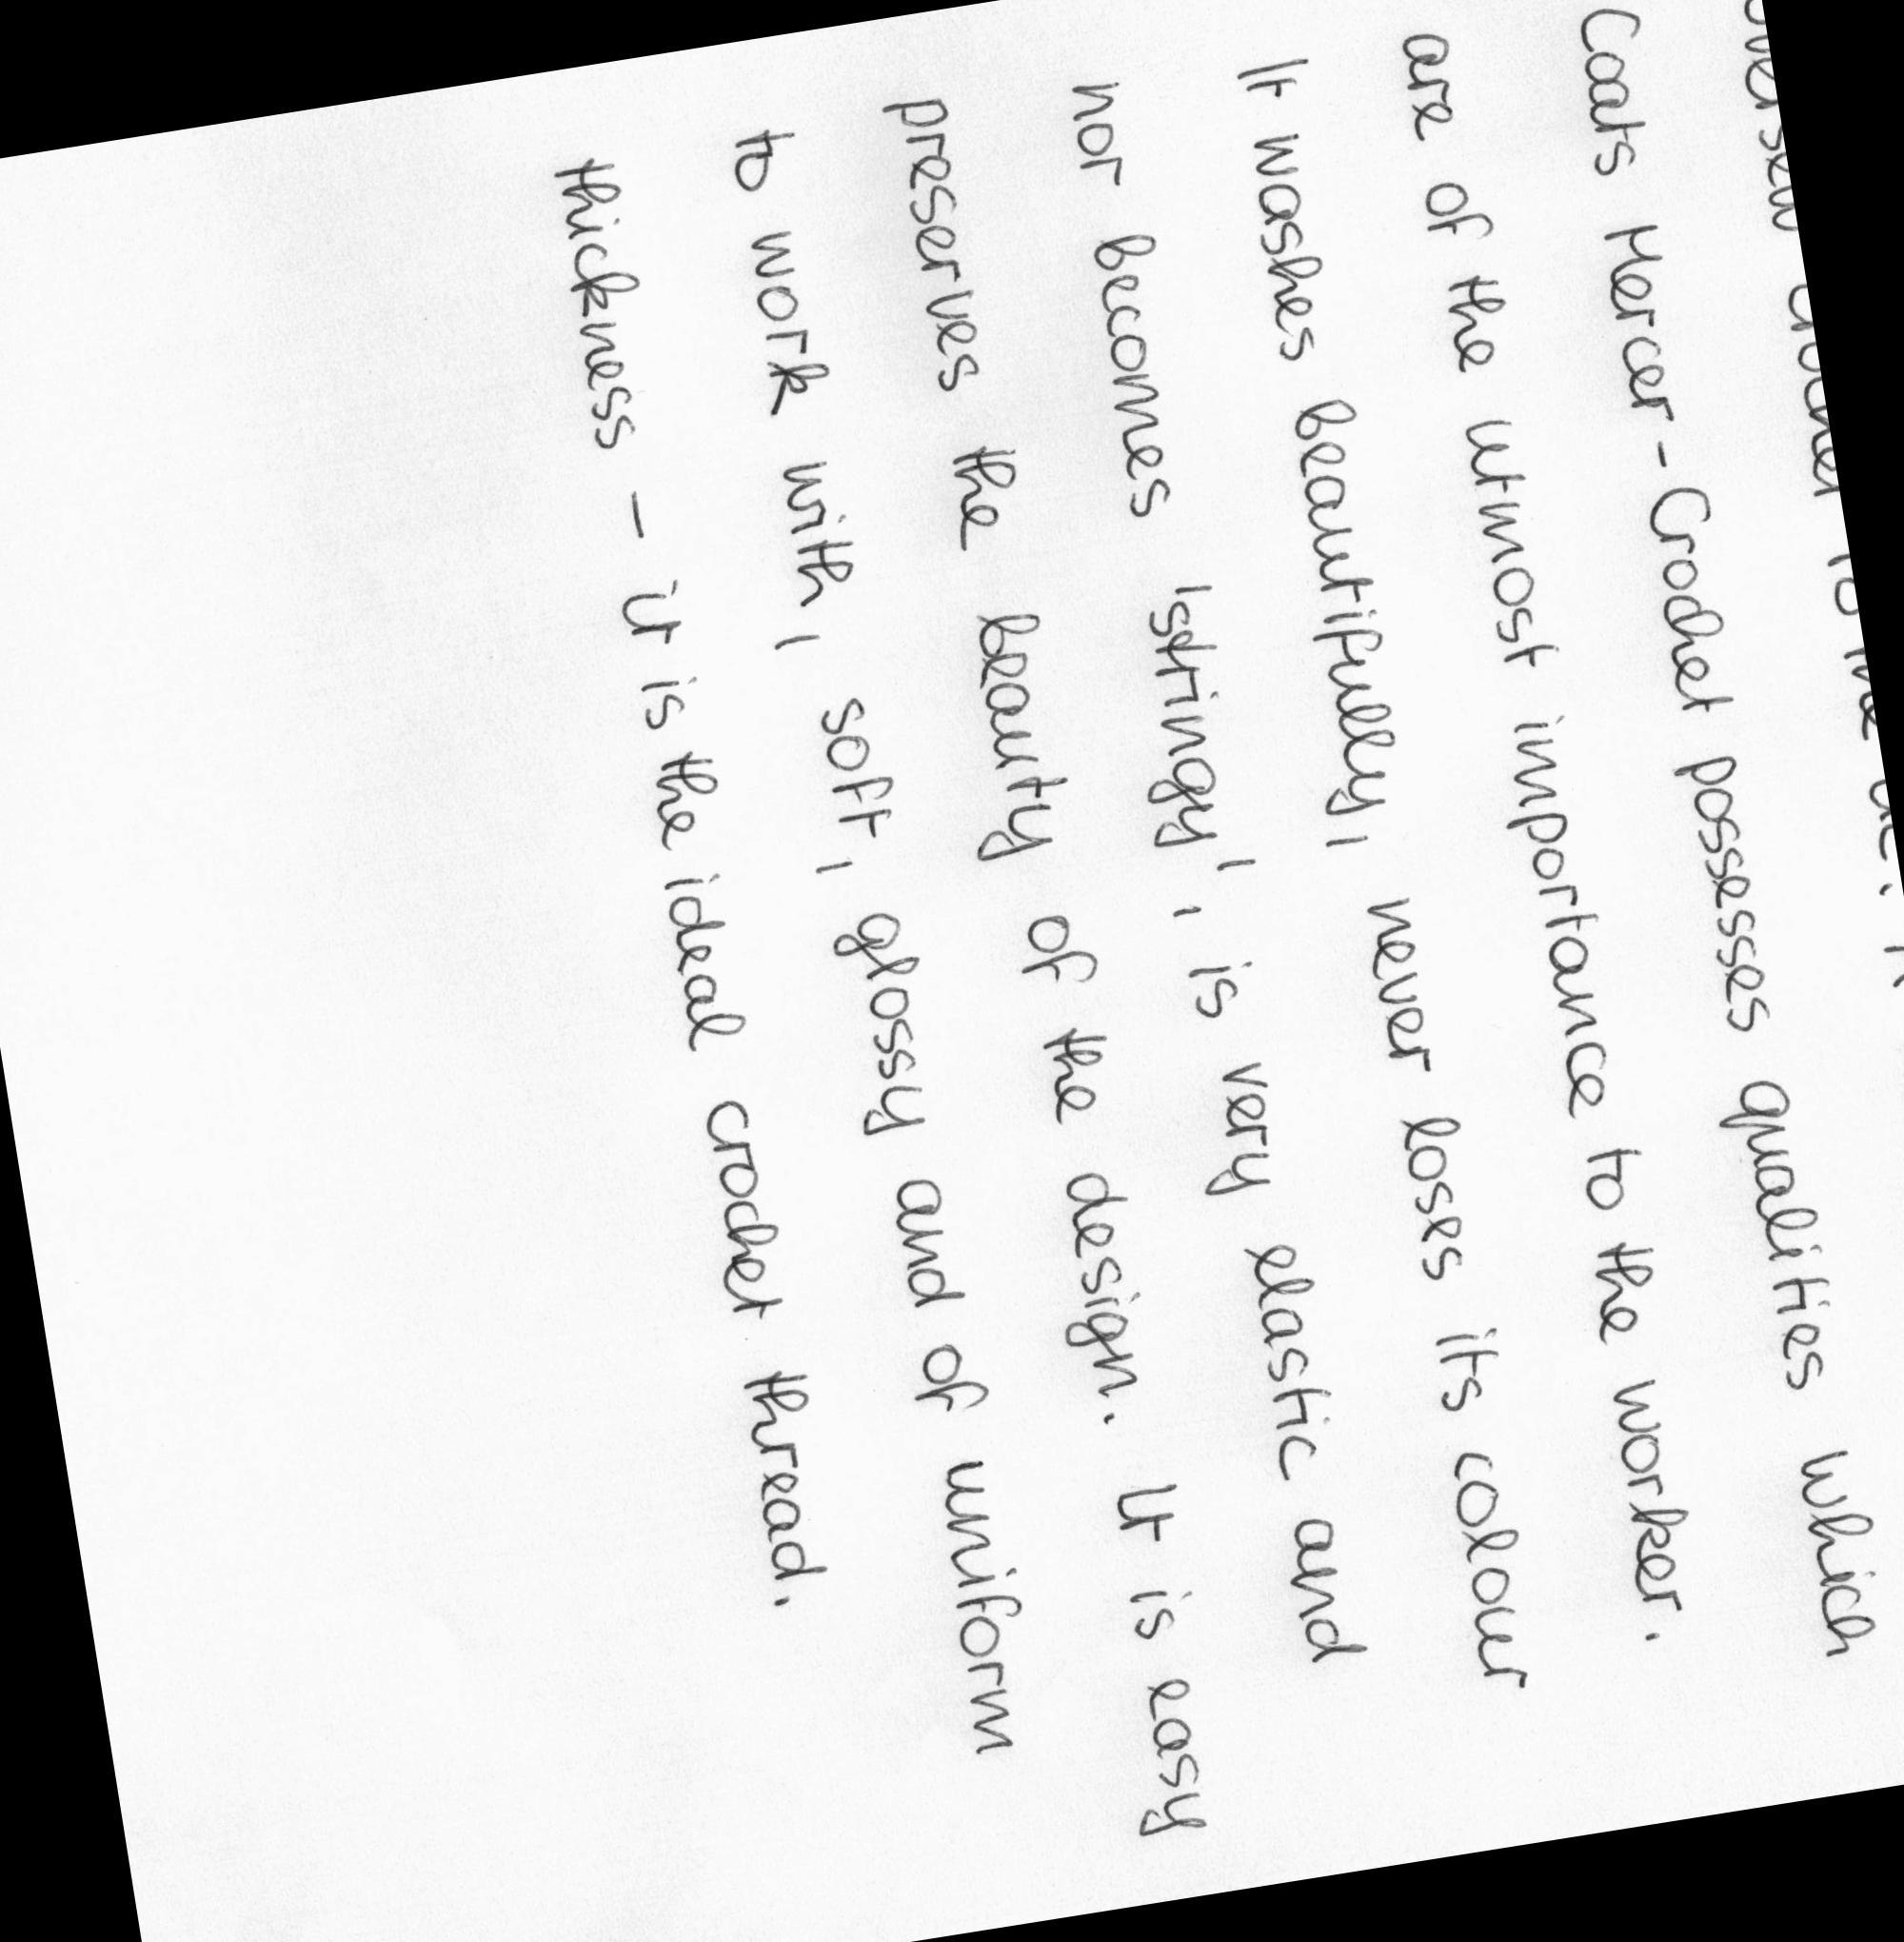 Coats Mercer-Crochet possesses qualities which
are of the utmost importance to the worker.
It washes beautifully, never loses its colour
nor becomes 'stringy', is very elastic and
preserves the beauty of the design. It is easy
to work with, soft, glossy and of uniform
thickness - it is the ideal crochet thread.